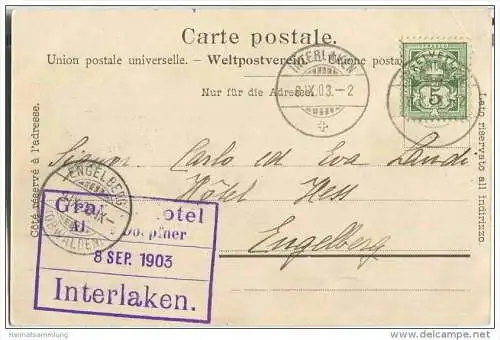 Carte postale.
Union postale universelle. - Weltpostverein. - Unione postale
Nur für die Adresse.
Côté réservé à l'adresse.
Lato riservato all indirizzo.
INTERLAKEN
8.IX.03.-2
HELVETIA
5
Signor Carlo ed Eva Landi
Hôtel Hess
Engelberg
ENGELBERG
(OBWALDEN)
Gra otel
Doepfner
8 SEP. 1903
Interlaken.
Heimatsammlung
www.delcampe.net